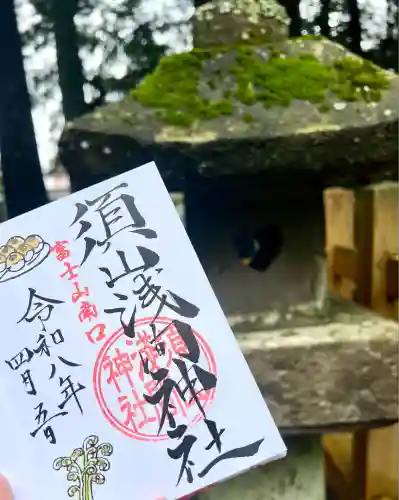 須山浅間神社
富士山南口
須山浅間神社
令和八年
四月五日